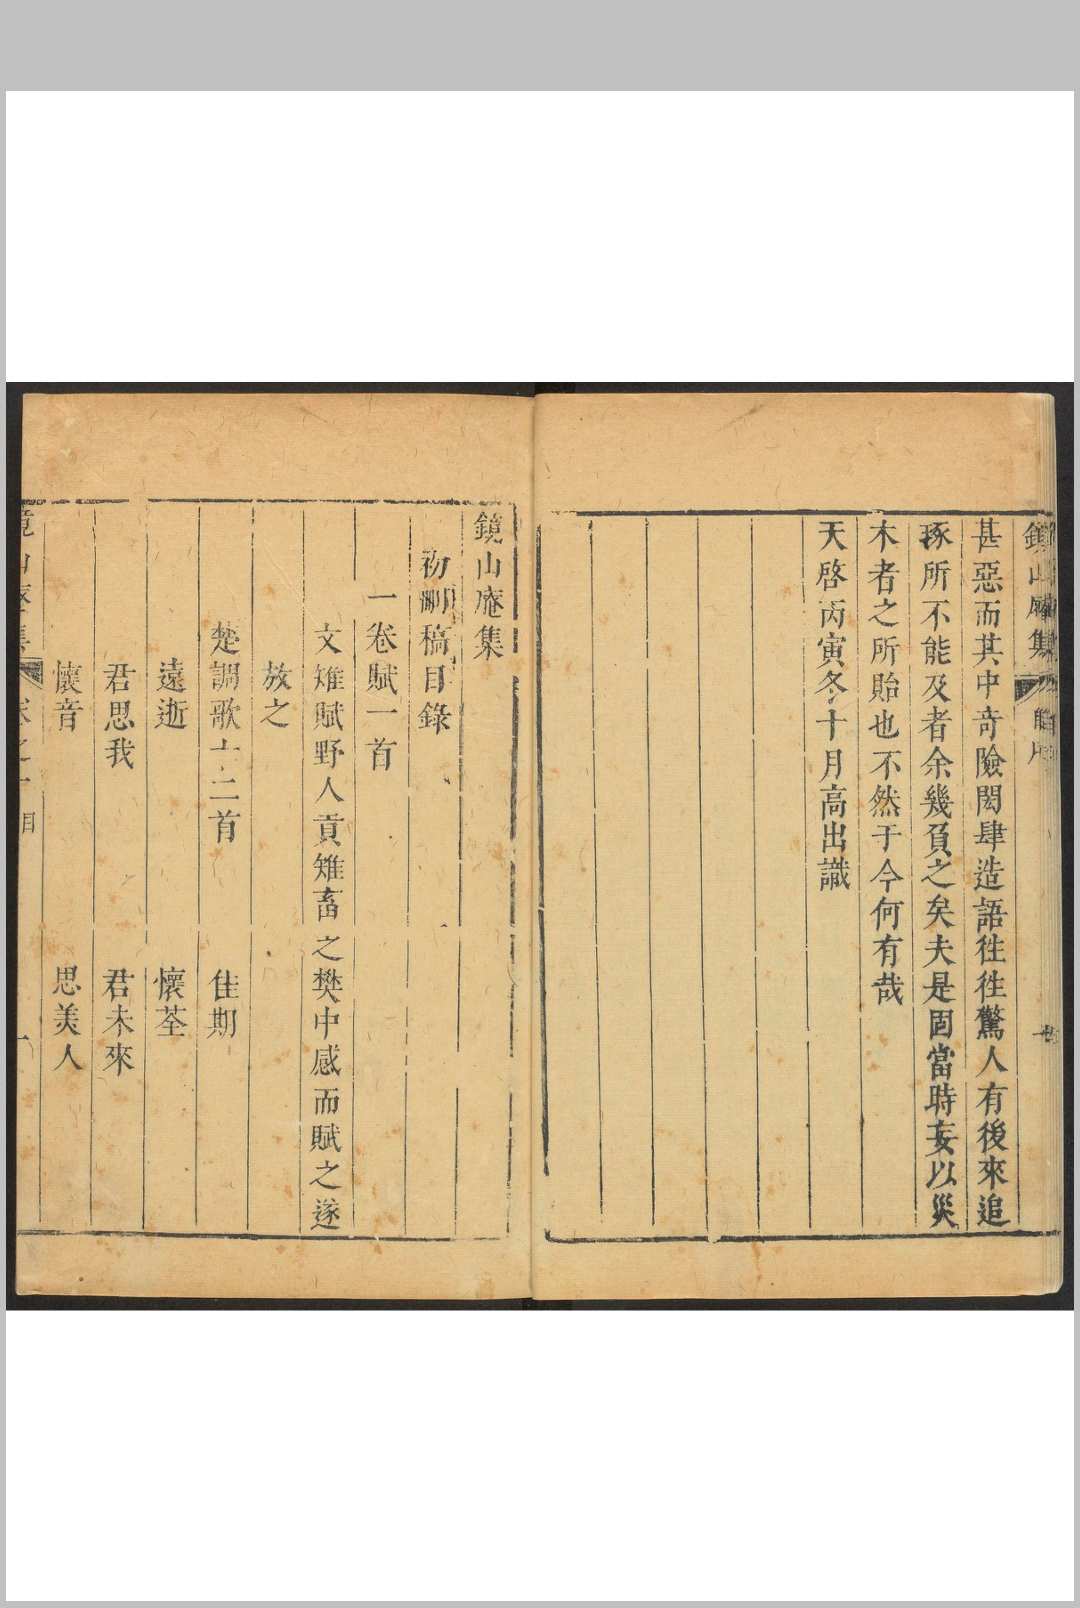 鏡山庵集
甚惡而其中奇險閎肆造語徃徃驚人有後來追
琢所不能及者余幾負之矣夫是固當時妄以災
木者之所貽也不然于今何有哉
天啓丙寅冬十月高出識
鏡山庵集
初刪稿目錄
一卷賦一首
文雉賦野人貢雉畜之樊中感而賦之遂
放之
楚調歌十二首 佳期
遠逝 懷荃
君思我 君未來
懷音 思美人